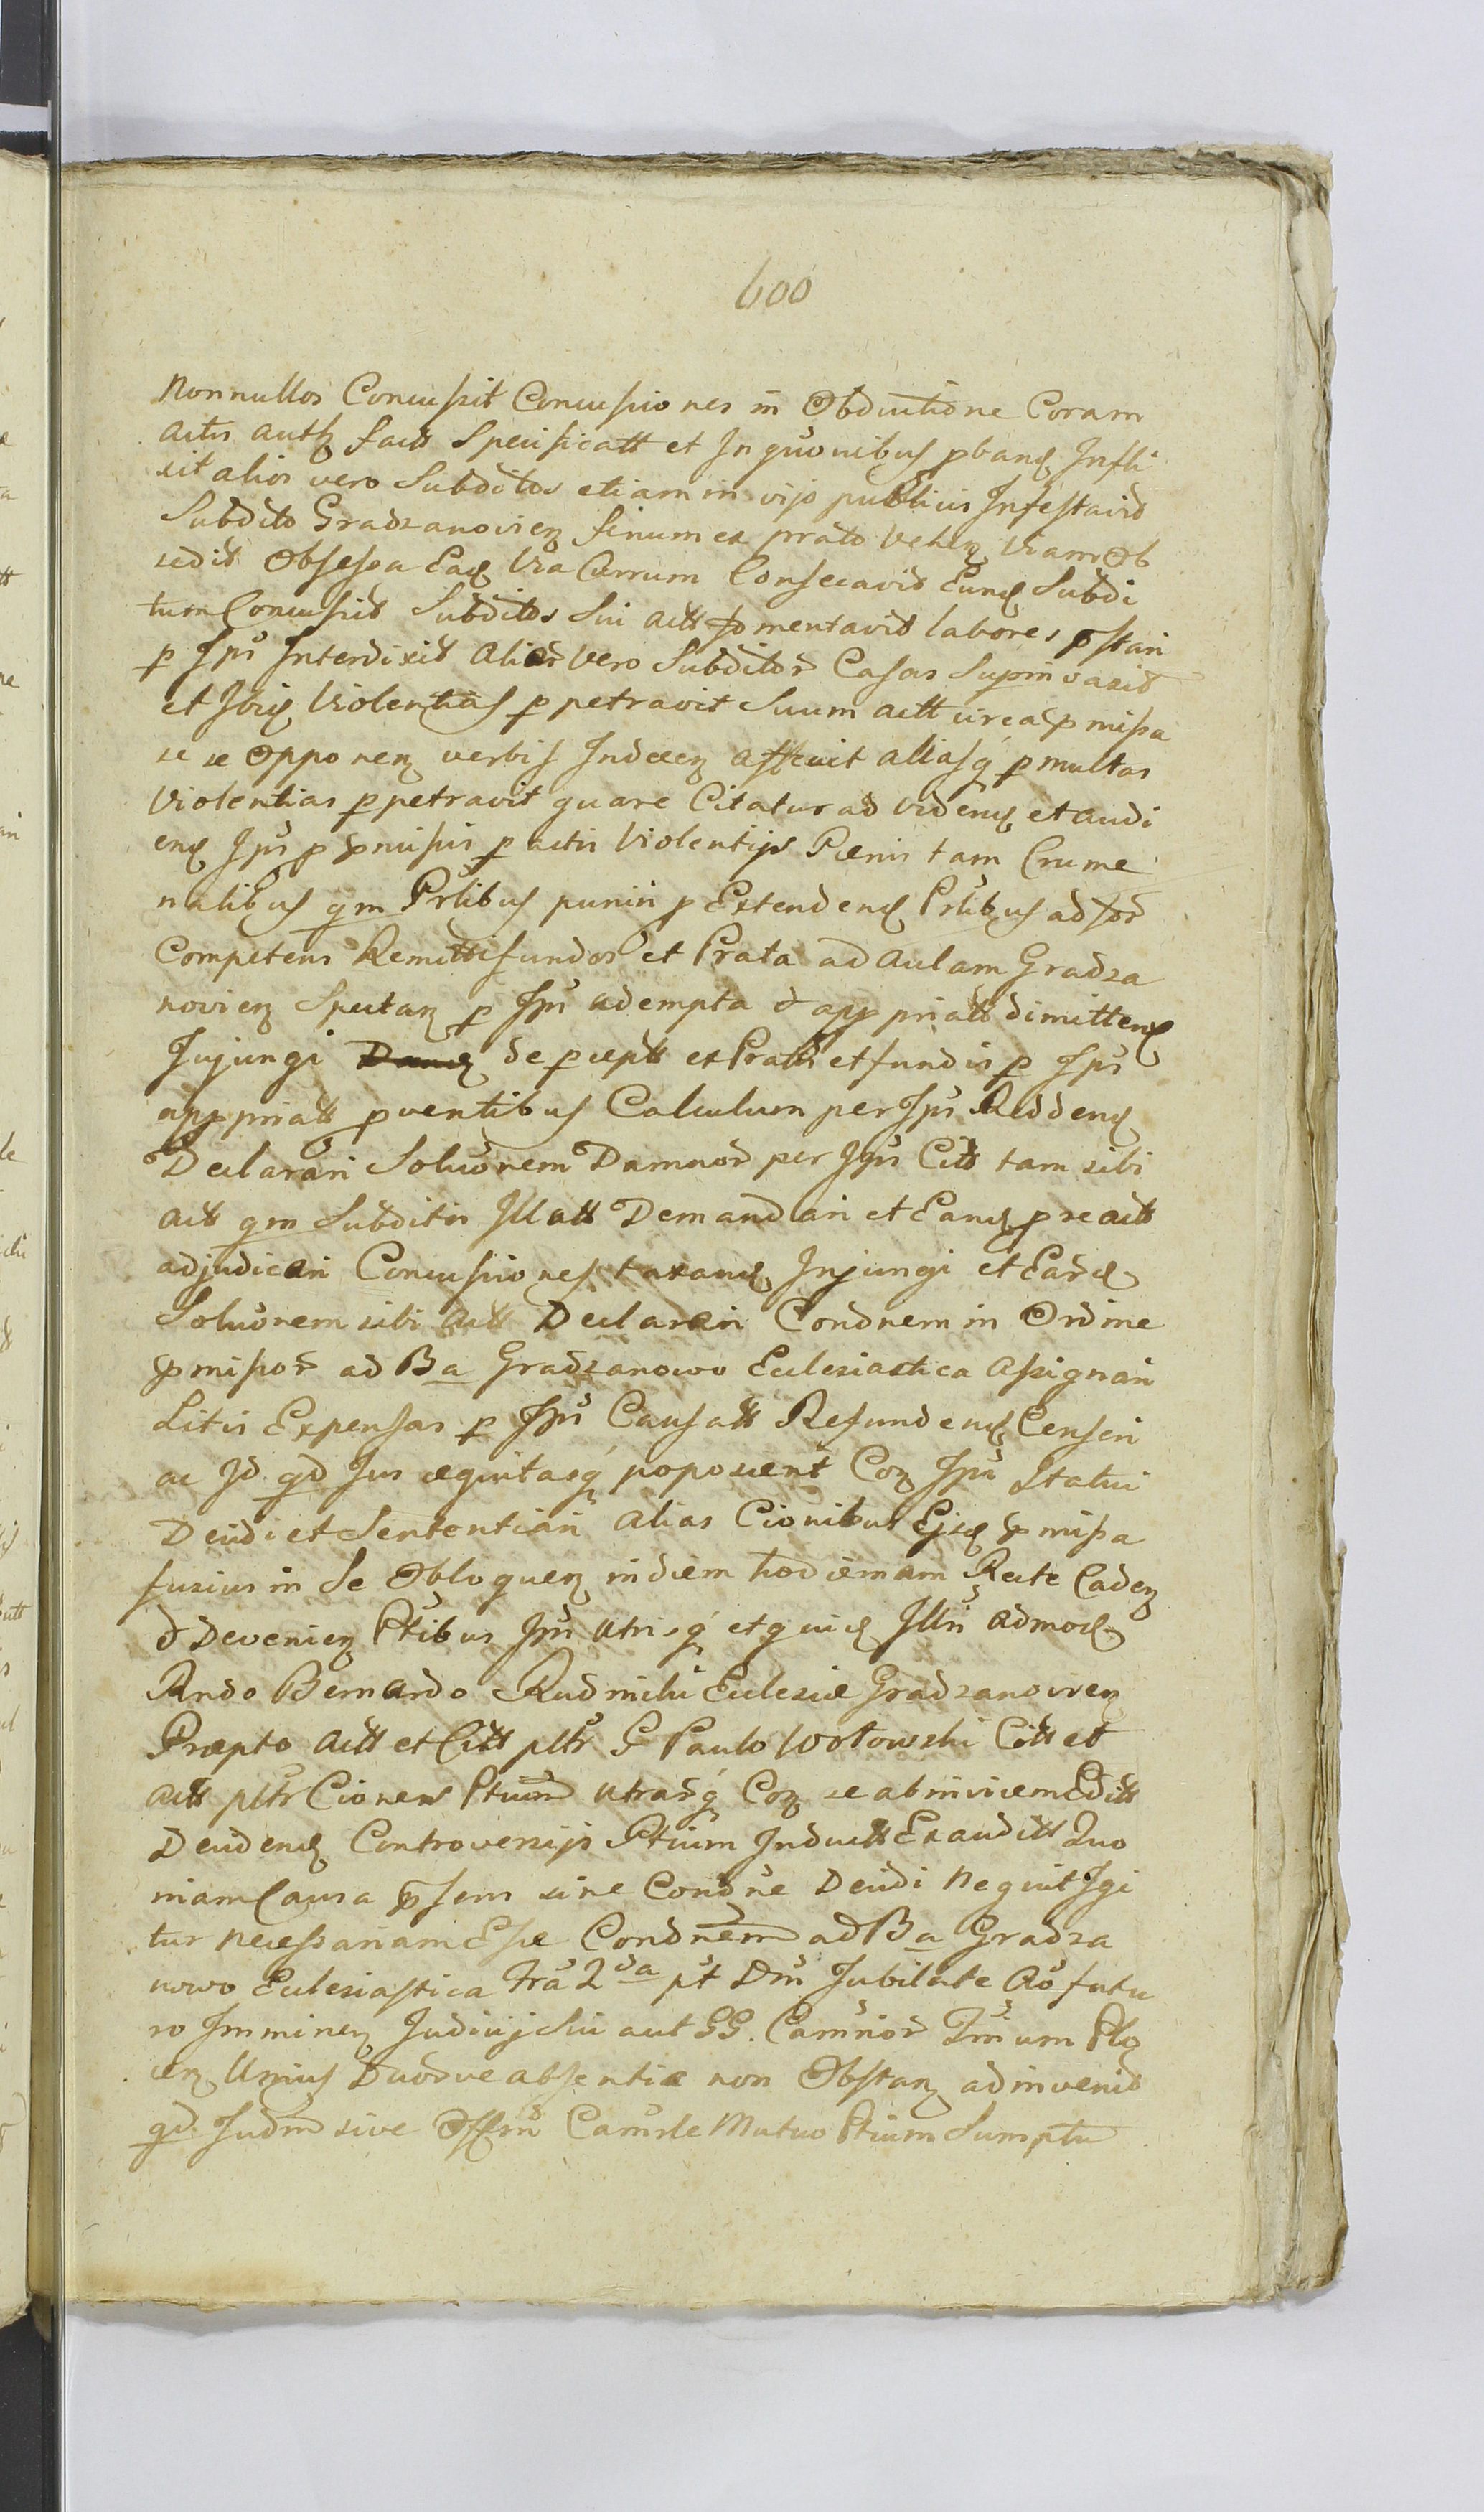 600
Nonnullos Concussit Concussiones in Obductione Coram
actis auth factt Specificatt et Inquōnibus pband Infli
xit alios vero Subditos etiam in vijs publicis Infestavit
Subdito Gradzanovien finum ex prato Vehen Viam Ob
sedit Obsessa Eaq Via Currum Consecavit Eund Subdi
tum Concussit Subditos Sui actt fomentavit labores pstari
p Ipū Interdixit Alior Vero Subditor Casas Supinvasit
et Ibiq Violentias ppetravit Suum actt circa pmissa
se se Opponen verbis Indecen affecit aliasq pmultas
Violentias ppetravit quare Citatur ad Videnđ et audi
enđ Ipū p pmissis pactis Violentijs Pœnis tam Crime
nalibus qm Prlibus puniri p Extendend Prlibus ad for
Competens Remitti fundos et Prata ad Aulam Gradza
novien Spectan p Ipū adempta & appriatt dimittend
Injungi de pceptt ex Pratis et fundis p Ipū
appriatt pventibus Calculum per Ipū Reddend
Declarari Soluōnem Damnor per Ipū Citt tam sibi
actt qm Subditis Illatt Demandari et Eand pre actt
adjudicari Concussiones taxand Injungi et Eard
Soluōnem sibi Actt Declarari Condnem in Ordine
pmissor ad Ba Gradzanowo Ecclesiastica Assignari
Litis Expensas p Ipū Causatt Refundend Censeri
ac Id qd Jus æquitasq poposcent Con Ipū Statui
Decidi et Sententiari alias Cionibus Ejsd pmissa
fusius in Se Obloquen in diem hodiernam Recte Caden
& Devenien Ptibus Ipīs Utrisq et quid Illri Admod
Rndo Bernardo Rudnicki Ecclesiæ Gradzanovien
Præpto Actt et Citt pltr G Paulo Wołowski Citt et
actt pltr Cionem Ptium Utrarq Con se ab invicem Editt
Decidend Controversijs Ptium Inductt Exauditt Quo
niam Causa psens sine Condne Decidi Nequit Igi
tur Necessariam Esse Condnem ad Ba Gradza
nowo Ecclesiastica fra 2da pt Dm Jubilate Ao futu
ro Imminen Judicij Sui aut GG. Camrior Trium Plo
cen Unius Duorve absentia non Obstan adinvenit
qd Judm sive Offm Camrle Mutuo Ptium Sumptu